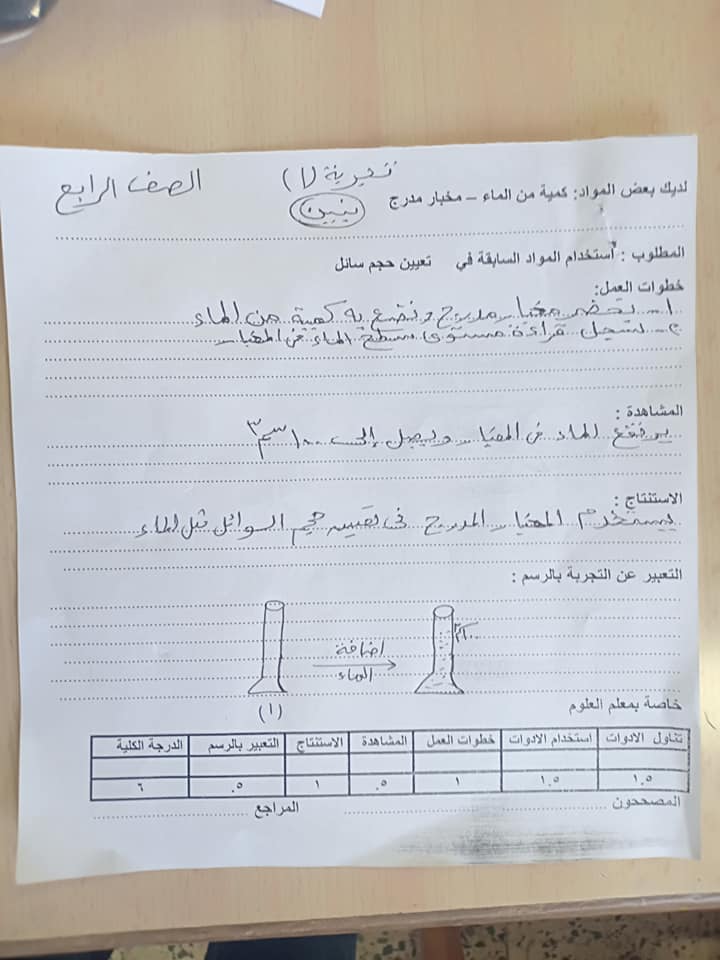 تجربة (١) الصف الرابع
لديك بعض المواد: كمية من الماء – مخبار مدرج
المطلوب : أستخدام المواد السابقة في تعيين حجم سائل
خطوات العمل:
١- نحضر مخبار مدرج ونضع به كمية من الماء
٢- نسجل قراءة مستوى سطح الماء فى المخبار
المشاهدة :
يرتفع الماء فى المخبار ويصل إلى ١٠٠ سم٣
الاستنتاج :
يستخدم المخبار المدرج فى تعيين حجم السوائل مثل الماء
التعبير عن التجربة بالرسم :
اضافة
الماء
(١)
خاصة بمعلم العلوم
تناول الادوات استخدام الادوات خطوات العمل المشاهدة الاستنتاج التعبير بالرسم الدرجة الكلية
١.٥ ١.٥ ١ .٥ ١ .٥ ٦
المصححون المراجع